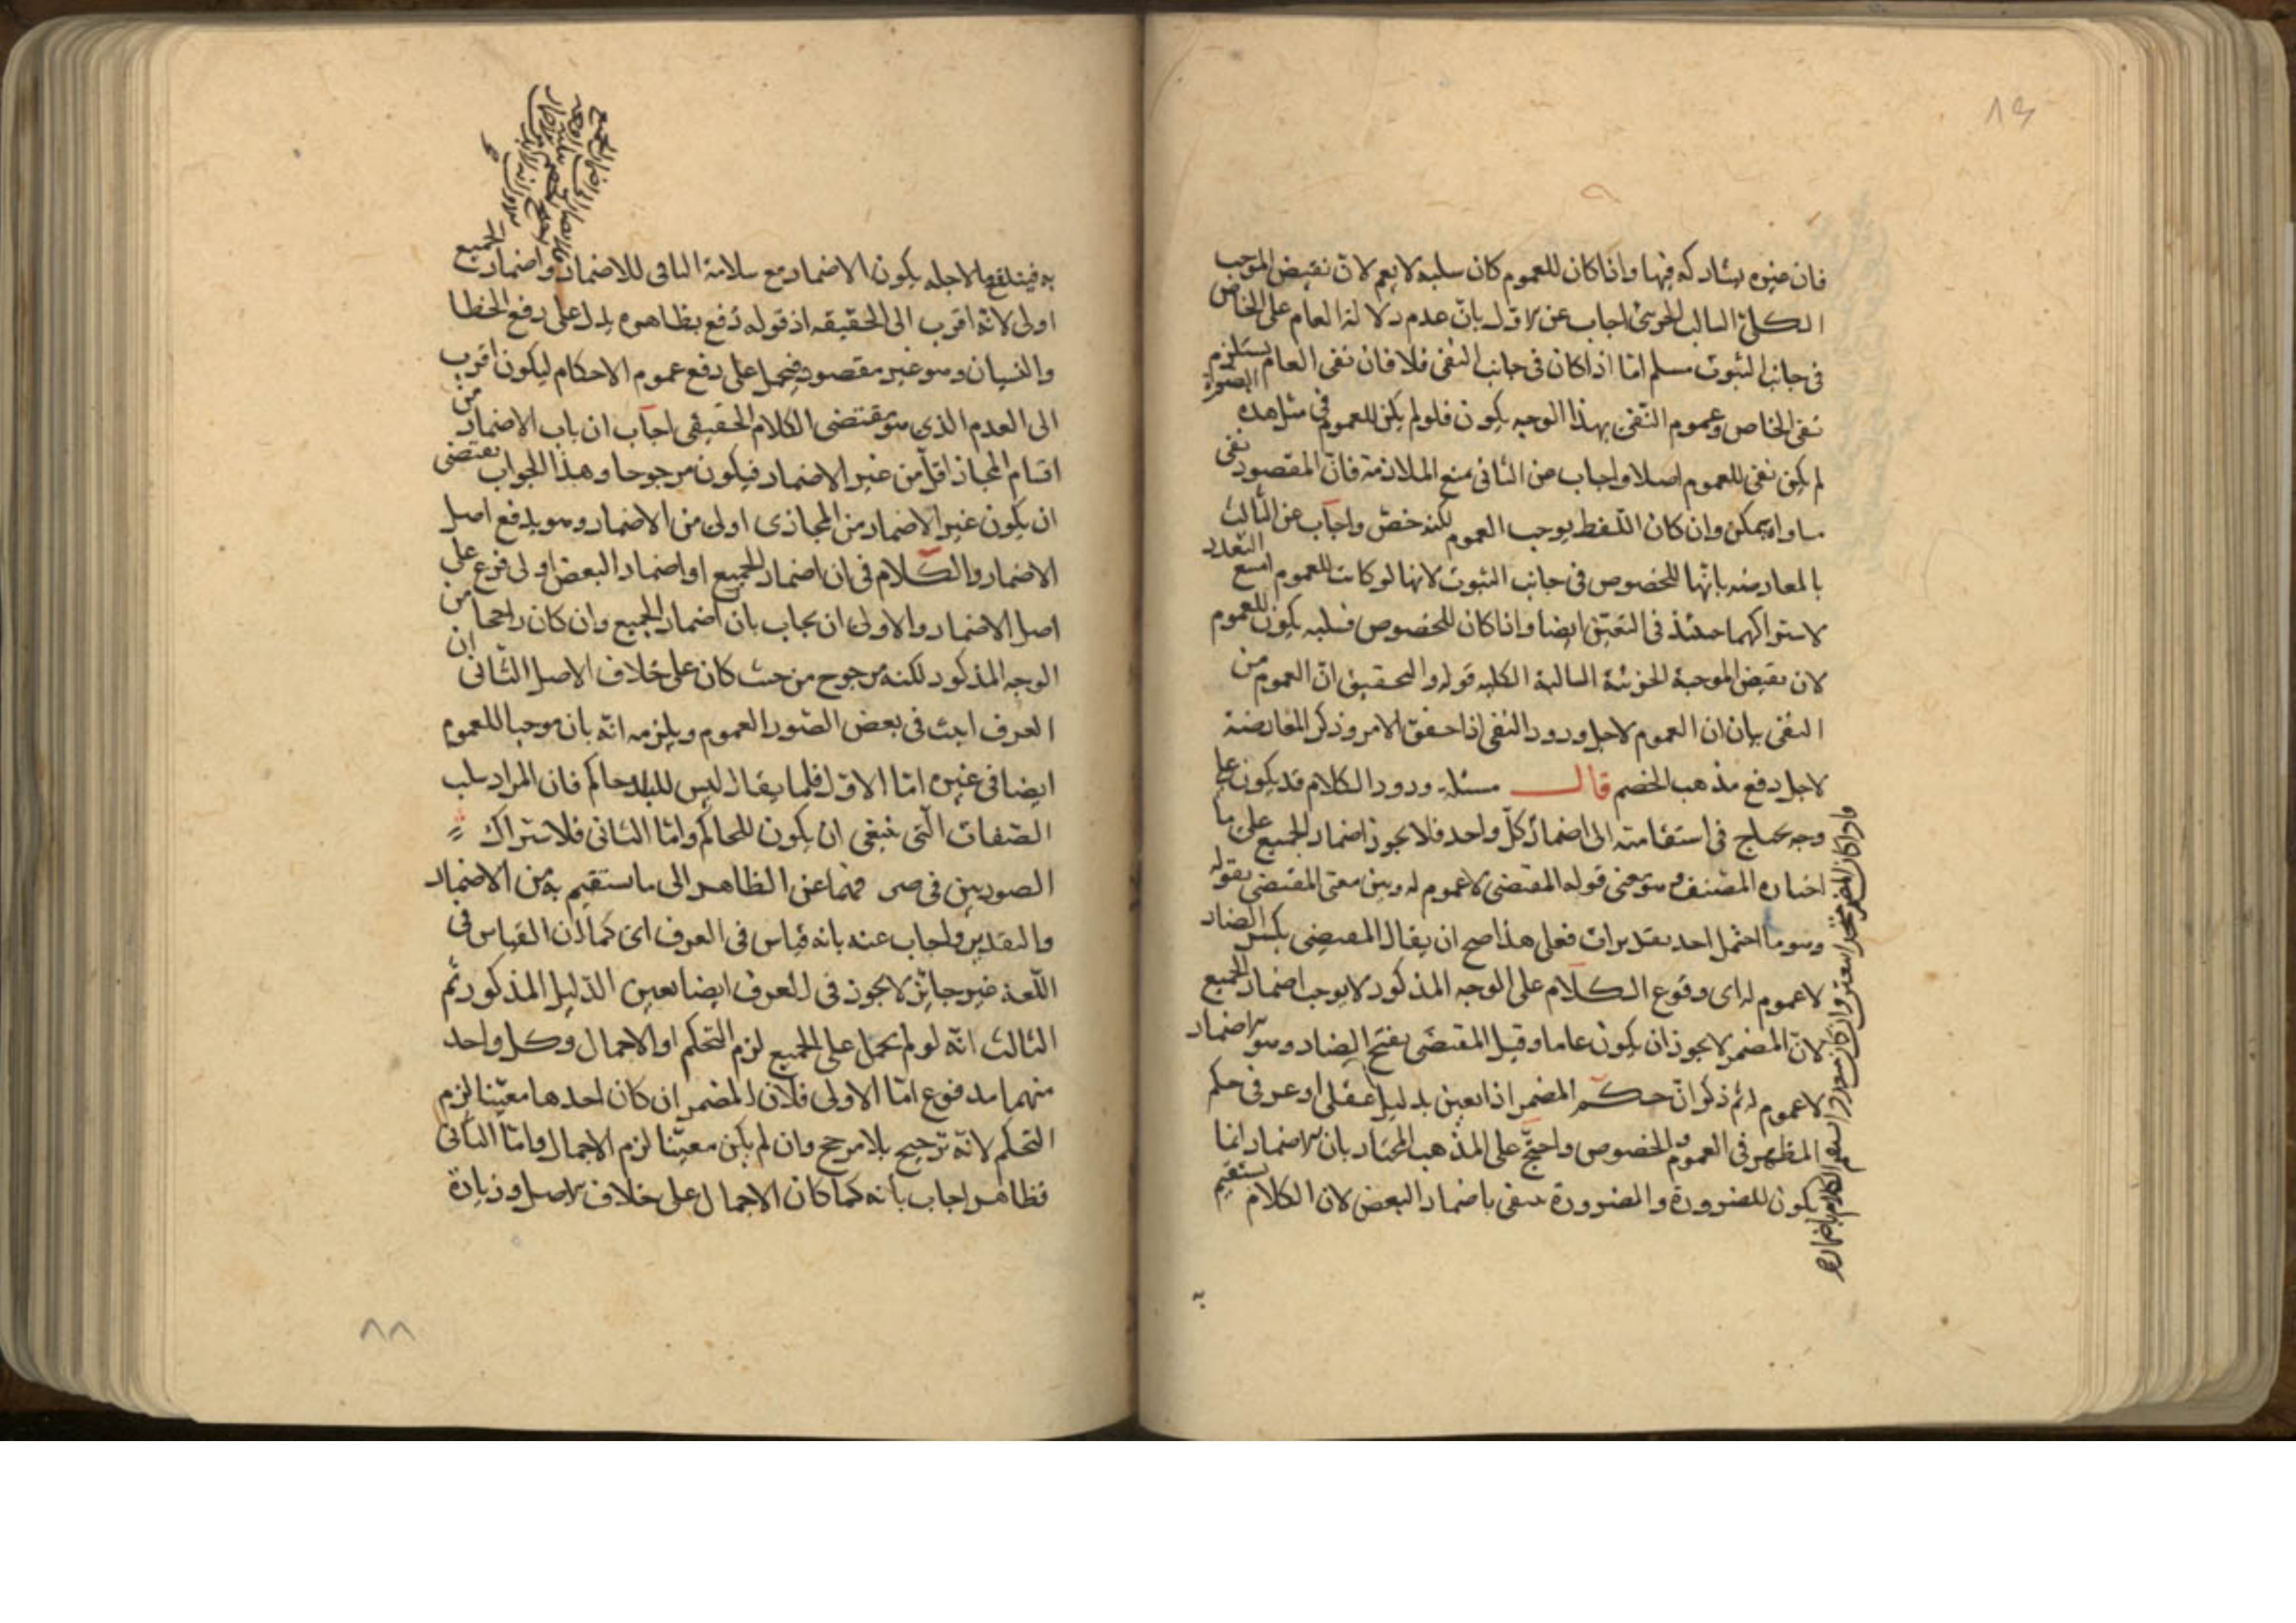 ٨٩
فان غيره يشاركه فيها واذا كان للعموم كان سلبه لا يعم لان نقيض الموجب
الكلى السالب الجزئى اجاب عن الاول بان عدم دلالة العام على الخاص
فى جانب الثبوت مسلم اما اذا كان فى جانب النفى فلا فان نفى العام يستلزم
نفى الخاص وعموم النفى بهذا الوجه يكون فلو لم يكن للعموم فى مثل هذه الصورة
لم يكن نفى للعموم اصلا واجاب عن الثانى بمنع الملازمة فان المقصود نفى
مساواة يمكن وان كان اللفظ يوجب العموم لكنه خص واجاب عن الثالث
بالمعارضه بانها للخصوص فى جانب الثبوت لانها لو كانت للعموم امتنع التعدد
لاشتراكهما حينئذ فى التعين ايضا واذا كان للخصوص فسلبه يكون للعموم
لان نقيض الموجبة الجزئية السالبة الكلية قوله والتحقيق ان العموم من
النفى بيان ان العموم لاجل ورود النفى اذا حقق الامر وذكر المعارضة
لاجل دفع مذهب الخصم قال مسئلة ورود الكلام قد يكون على
وجه يحتاج فى استقامته الى اضمار كل واحد فلا يجوز اضمار الجميع على ما
اختاره المصنف وهو معنى قوله المقتضى لا عموم له وبين معنى المقتضى بقوله
وهو ما احتمل احد تقديرات فعلى هذا صح ان يقال المقتضى بكسر الضاد
لا عموم له اى وقوع الكلام على الوجه المذكور لا يوجب اضمار الجميع
لان المضمر لا يجوز ان يكون عاما وقيل المقتضى بفتح الضاد وهو الاضمار
لا عموم له ثم ذكر ان حكم المضمر اذا تعين بدليل عقلى او عرفى حكم
المظهر فى العموم والخصوص واحتج على المذهب المختار بان الاضمار انما
يكون للضرورة والضرورة تنتفى باضمار البعض لان الكلام يستقيم
به
به فينتفى ما لاجله يكون الاضمار مع سلامة الباقى للاضمار واضمار الجميع
اولى لانه اقرب الى الحقيقه اذ قوله رفع بظاهره يدل على رفع الخطا
والنسيان وهو غير مقصود فيحمل على رفع عموم الاحكام ليكون اقرب
الى العدم الذى هو مقتضى الكلام الحقيقى اجاب ان باب الاضمار من
اقسام المجاز اقل من غير الاضمار فيكون مرجوحا وهذا الجواب يقتضى
ان يكون غير الاضمار من المجازى اولى من الاضمار وهو يدفع اصل
الاضمار والكلام فى ان اضمار الجميع او اضمار البعض اولى فرع على
اصل الاضمار والاولى ان يجاب بان اضمار الجميع وان كان راجحا من
الوجه المذكور لكنه مرجوح من حيث كان على خلاف الاصل الثانى ان
العرف اثبت فى بعض الصور العموم ويلزمه انه بان موجبا للعموم
ايضا فى غيره اما الاول فلما يقال ليس للبلد حاكم فان المراد سلب
الصفات التى ينبغى ان يكون للحاكم واما الثانى فلاشتراك
الصورتين فى صرفهما عن الظاهر الى ما يستقيم به من الاضمار
والتقدير واجاب عنه بانه قياس فى العرف اى كما ان القياس فى
اللغة غير جائز لا يجوز فى العرف ايضا بعين الدليل المذكور ثم
الثالث انه لو لم يحمل على الجميع لزم التحكم او الاجمال وكل واحد
منهما مدفوع اما الاولى فلان المضمر ان كان احدها معينا لزم
التحكم لانه ترجيح بلا مرجح وان لم يكن معينا لزم الاجمال واما الثانى
فظاهر اجاب بانه كما كان الاجمال على خلاف الاصل وزيادة
٨٨